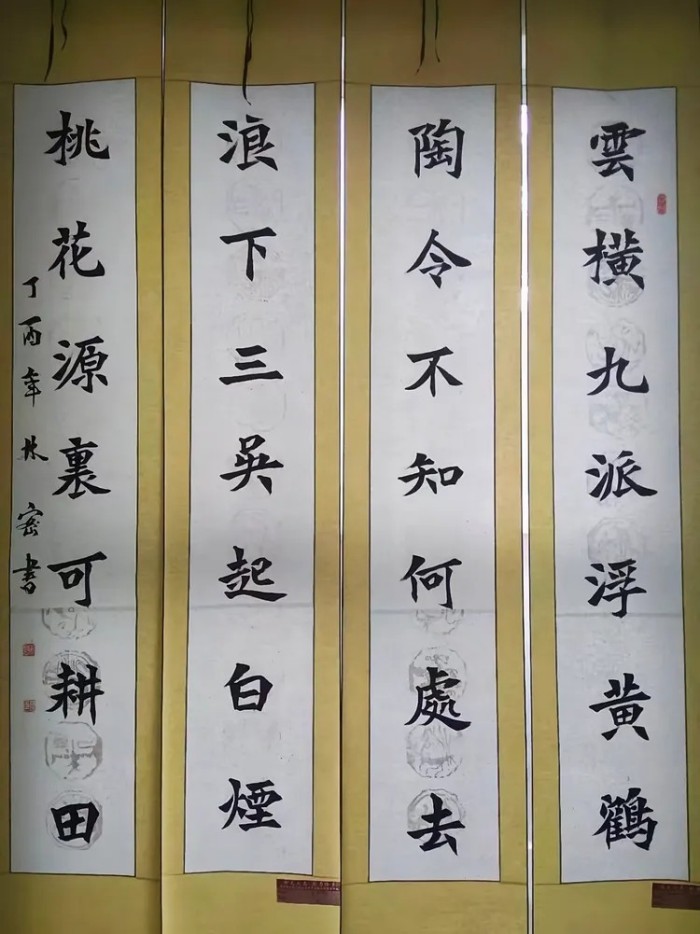 雲横九派浮黄鶴
陶令不知何處去
浪下三吳起白煙
桃花源裏可耕田
丁酉年林密書